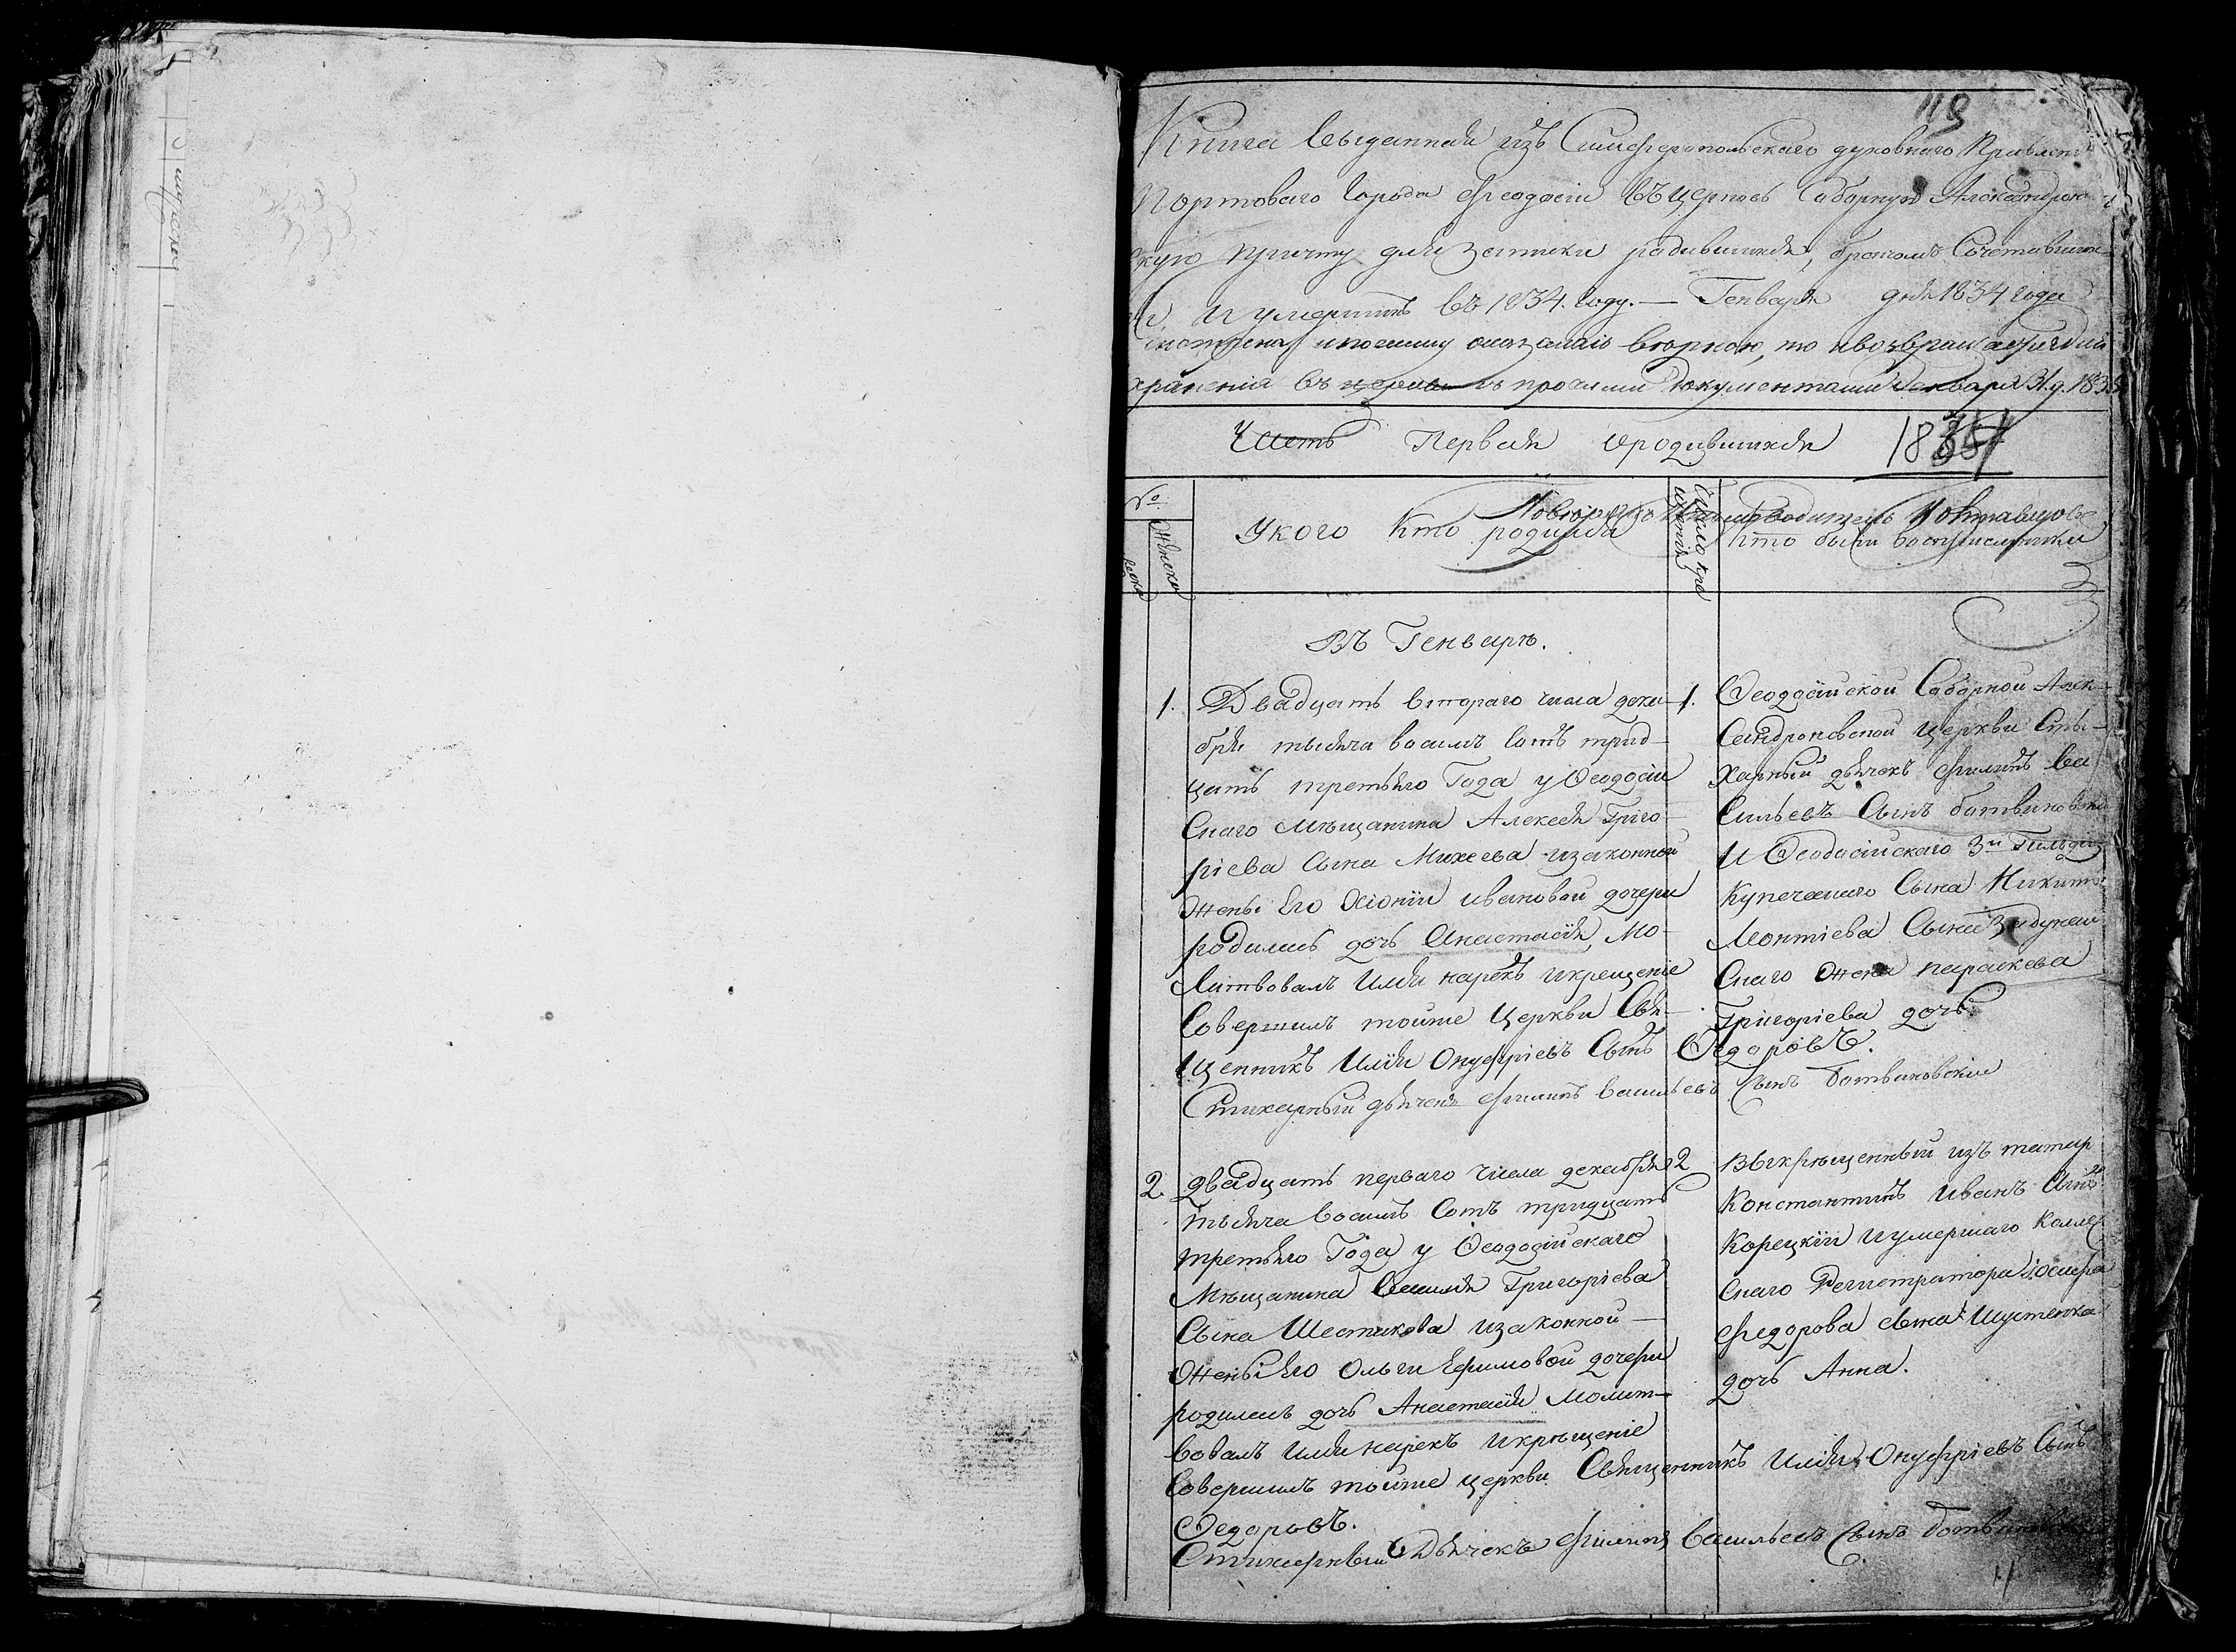 119
Книга выданная изъ Симферопольскаго духовнаго Правлен
Портоваго города Феодосіи въ церковь Саборную Александро
скую причту для записки радившихся, бракомъ Сочетавших
ся, и умершихъ въ 1834. году. — Генваря дня 1834 года
хранения въ съ прочими документами Генваря 31.д. 1835
Часть Первая о родившихся 1834
№
женска
У кого Кто родился
Число кре
щенія
Кто были восприемники
Въ Генварѣ.
1. Двадцать втораго числа дека-
бря тысяча восимъ сотъ трид-
цать третьяго Года у Ѳеодосій
Скаго мѣщанина Алексея Григо-
ріева Сына Михеева изаконной
жены Его Ксіоніи ивановой дочери
родилась дочь Анастасія, Мо-
литвовалъ имя нарекъ икрещеніе
Совершилъ тойже Церкви Свя-
щенникъ Илія Онуфріевъ Сынъ Ѳедоровъ.
Стихарный дьячекъ Филипъ Васильевъ Сынъ Ботвиновскій
1. Ѳеодосійской Саборной Алек-
сандроневской Церкви Сты-
харный дьячекъ Филипъ Ва
сильевъ Сынъ ботвиновскій
и Ѳеодосійскаго 3й Гильдіи
Купеческаго Сына Никиты
Леонтіева Сына
Скаго жена параскева
Григоріева дочь.
2. Двадцать перваго числа декабря
тысяча восимъ Сотъ тридцать
третьяго Года у Ѳеодосійскаго
Мѣщанина Василія Григоріева
Сына Шестикова изаконной
жены его Ольги Ефимовой дочери
родилась дочь Анастасія Молит-
вовалъ имя нарекъ икрѣщеніе
Совершилъ тойже церкви Священникъ Илія Онуфріевъ Сынъ
Ѳедоровъ.
Стихарный Дьячекъ Филипъ Васильевъ Сынъ Ботвиновскій
2 Выкрѣщенный изъ татар
Константинъ Иванъ Сынъ
Корецкій и умершаго Коллеж
Скаго Регистратора Іосифа
Федорова сына Шустенка
дочь Анна.